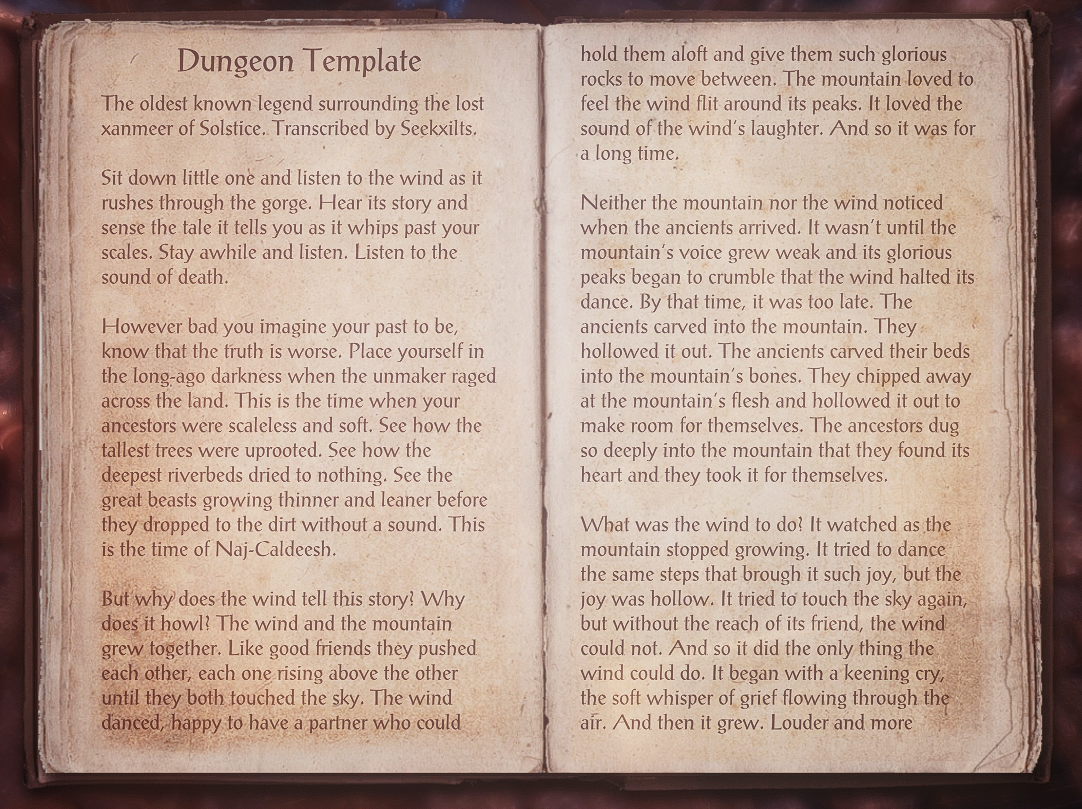 Dungeon Template
The oldest known legend surrounding the lost
xanmeer of Solstice. Transcribed by Seekxilts.
Sit down little one and listen to the wind as it
rushes through the gorge. Hear its story and
sense the tale it tells you as it whips past your
scales. Stay awhile and listen. Listen to the
sound of death.
However bad you imagine your past to be,
know that the truth is worse. Place yourself in
the long-ago darkness when the unmaker raged
across the land. This is the time when your
ancestors were scaleless and soft. See how the
tallest trees were uprooted. See how the
deepest riverbeds dried to nothing. See the
great beasts growing thinner and leaner before
they dropped to the dirt without a sound. This
is the time of Naj-Caldeesh.
But why does the wind tell this story? Why
does it howl? The wind and the mountain
grew together. Like good friends they pushed
each other, each one rising above the other
until they both touched the sky. The wind
danced, happy to have a partner who could
hold them aloft and give them such glorious
rocks to move between. The mountain loved to
feel the wind flit around its peaks. It loved the
sound of the wind's laughter. And so it was for
a long time.
Neither the mountain nor the wind noticed
when the ancients arrived. It wasn't until the
mountain's voice grew weak and its glorious
peaks began to crumble that the wind halted its
dance. By that time, it was too late. The
ancients carved into the mountain. They
hollowed it out. The ancients carved their beds
into the mountain's bones. They chipped away
at the mountain's flesh and hollowed it out to
make room for themselves. The ancestors dug
so deeply into the mountain that they found its
heart and they took it for themselves.
What was the wind to do? It watched as the
mountain stopped growing. It tried to dance
the same steps that brough it such joy, but the
joy was hollow. It tried to touch the sky again,
but without the reach of its friend, the wind
could not. And so it did the only thing the
wind could do. It began with a keening cry,
the soft whisper of grief flowing through the
air. And then it grew. Louder and more